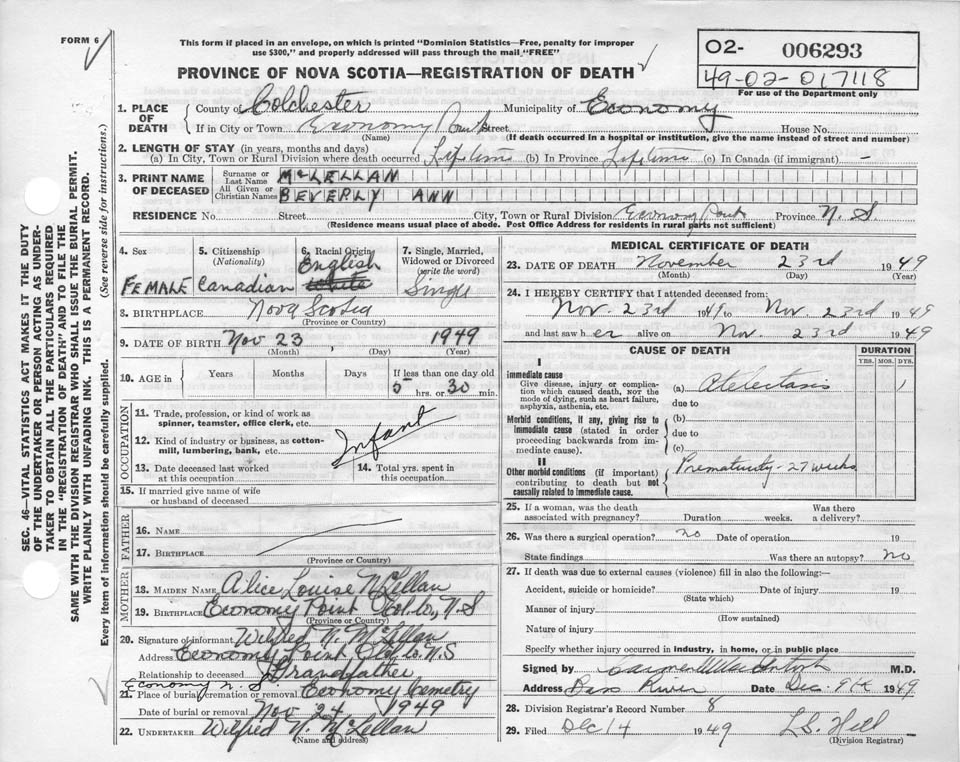 FORM 6
This form if placed in an envelope, on which is printed "Dominion Statistics—Free, penalty for improper
use $300," and properly addressed will pass through the mail "FREE"
PROVINCE OF NOVA SCOTIA—REGISTRATION OF DEATH
02- 006293
49-02-017118
For use of the Department only
SEC. 46—VITAL STATISTICS ACT MAKES IT THE DUTY
OF THE UNDERTAKER OR PERSON ACTING AS UNDER-
TAKER TO OBTAIN ALL THE PARTICULARS REQUIRED
IN THE "REGISTRATION OF DEATH" AND TO FILE THE
SAME WITH THE DIVISION REGISTRAR WHO SHALL ISSUE THE BURIAL PERMIT.
WRITE PLAINLY WITH UNFADING INK. THIS IS A PERMANENT RECORD.
Every item of information should be carefully supplied. (See reverse side for instructions.)
1. PLACE OF DEATH County of Colchester Municipality of Economy
If in City or Town Economy Point Street House No.
(Name) (If death occurred in a hospital or institution, give the name instead of street and number)
2. LENGTH OF STAY (in years, months and days)
(a) In City, Town or Rural Division where death occurred Lifetime (b) In Province Lifetime (c) In Canada (if immigrant) —
3. PRINT NAME OF DECEASED Surname or Last Name McLELLAN
All Given or Christian Names BEVERLY ANN
RESIDENCE No. Street City, Town or Rural Division Economy Point Province N. S.
(Residence means usual place of abode. Post Office Address for residents in rural parts not sufficient)
4. Sex 5. Citizenship (Nationality) 6. Racial Origin 7. Single, Married, Widowed or Divorced (write the word)
FEMALE Canadian English White Single
8. BIRTHPLACE Nova Scotia
(Province or Country)
9. DATE OF BIRTH Nov 23 1949
(Month) (Day) (Year)
10. AGE in Years Months Days If less than one day old
5 hrs. or 30 min.
OCCUPATION
11. Trade, profession, or kind of work as spinner, teamster, office clerk, etc.
12. Kind of industry or business, as cotton-mill, lumbering, bank, etc. Infant
13. Date deceased last worked at this occupation 14. Total yrs. spent in this occupation
15. If married give name of wife or husband of deceased
FATHER
16. NAME
17. BIRTHPLACE
(Province or Country)
MOTHER
18. MAIDEN NAME Alice Louise McLellan
19. BIRTHPLACE Economy Point Col. Co., N.S
(Province or Country)
20. Signature of informant Wilfred N. McLellan
Address Economy Point Col. Co. N.S
Relationship to deceased Grandfather
Economy N. S.
21. Place of burial, cremation or removal Economy Cemetry
Date of burial or removal Nov 24 1949
22. UNDERTAKER Wilfred N. McLellan
(Name and address)
MEDICAL CERTIFICATE OF DEATH
23. DATE OF DEATH November 23rd 1949
(Month) (Day) (Year)
24. I HEREBY CERTIFY that I attended deceased from:
Nov. 23rd 1949 to Nov. 23rd 1949
and last saw her alive on Nov. 23rd 1949
CAUSE OF DEATH DURATION
YRS. MOS. DYS.
I
immediate cause
Give disease, injury or complication which caused death, NOT the mode of dying, such as heart failure, asphyxia, asthenia, etc. (a) Atelectasis 1
due to
Morbid conditions, if any, giving rise to immediate cause (stated in order proceeding backwards from immediate cause). (b)
due to
(c)
II
Other morbid conditions (if important) contributing to death but not causally related to immediate cause. Prematurity - 27 weeks
25. If a woman, was the death associated with pregnancy? Duration weeks. Was there a delivery?
26. Was there a surgical operation? no Date of operation 19
State findings Was there an autopsy? no
27. If death was due to external causes (violence) fill in also the following:—
Accident, suicide or homicide? Date of injury 19
(State which)
Manner of injury
(How sustained)
Nature of injury
Specify whether injury occurred in industry, in home, or in public place
Signed by M.D.
Address Bass River Date Dec. 9th 1949
28. Division Registrar's Record Number 8
29. Filed Dec 14 1949 L.S. Hill
(Division Registrar)